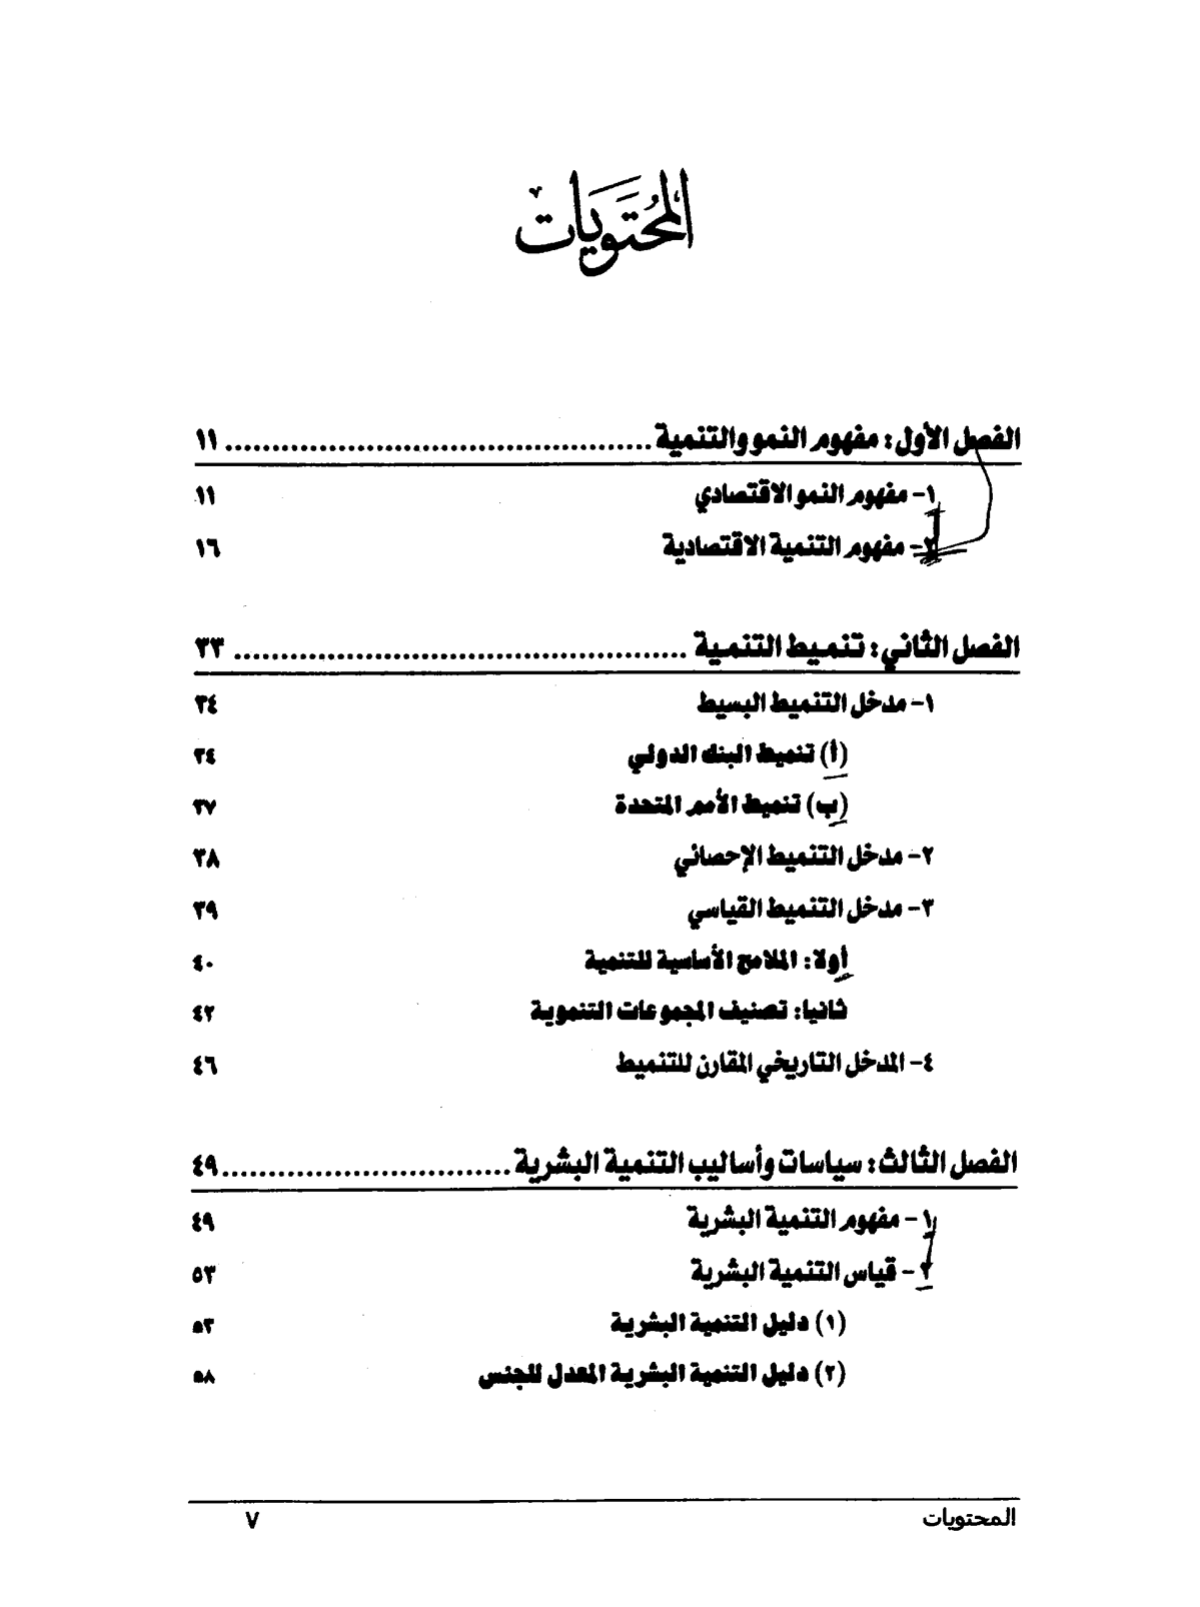 المُحتَوَيات
الفصل الأول: مفهوم النمو والتنمية ............................................. ١١
١- مفهوم النمو الاقتصادي ١١
٢- مفهوم التنمية الاقتصادية ١٦
الفصل الثاني: تنميط التنمية ................................................ ٣٣
١- مدخل التنميط البسيط ٣٤
(أ) تنميط البنك الدولي ٣٤
(ب) تنميط الأمم المتحدة ٣٧
٢- مدخل التنميط الإحصائي ٣٨
٣- مدخل التنميط القياسي ٣٩
أولا: الملامح الأساسية للتنمية ٤٠
ثانيا: تصنيف المجموعات التنموية ٤٢
٤- المدخل التاريخي المقارن للتنميط ٤٦
الفصل الثالث: سياسات وأساليب التنمية البشرية ............................... ٤٩
١- مفهوم التنمية البشرية ٤٩
٢- قياس التنمية البشرية ٥٣
(١) دليل التنمية البشرية ٥٣
(٢) دليل التنمية البشرية المعدل للجنس ٥٨
المحتويات ٧